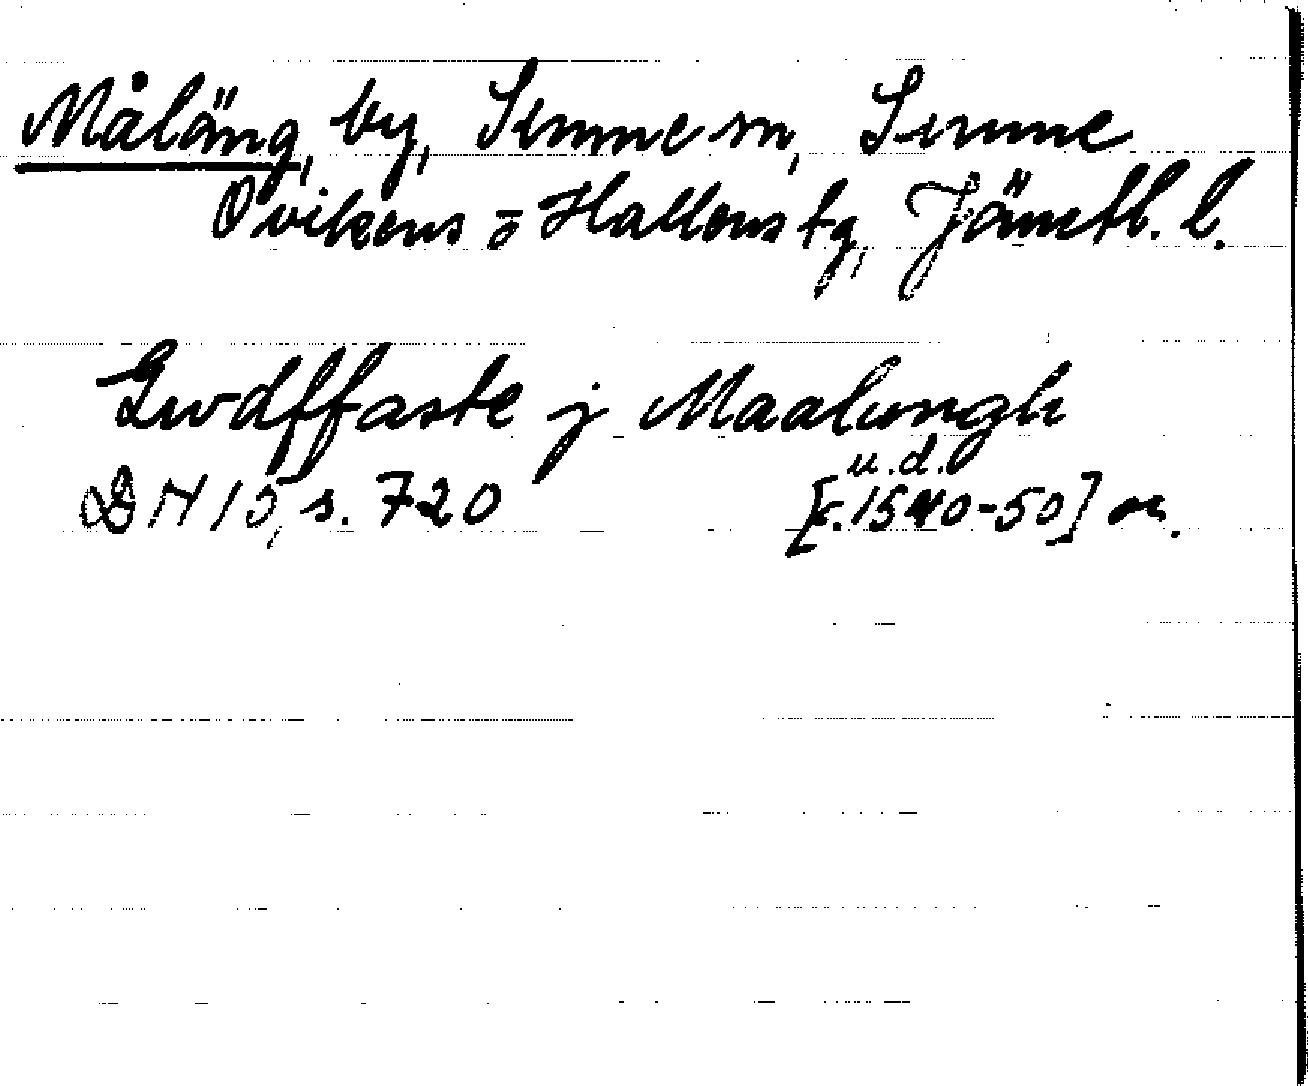 Måläng, by, Sunne sn, Sunne
Ovikens o Hallens tg, Jämtl. l.
Gwdffaste j Maalungh
u.d.
DN 15, s. 720 [c. 1540-50] or.